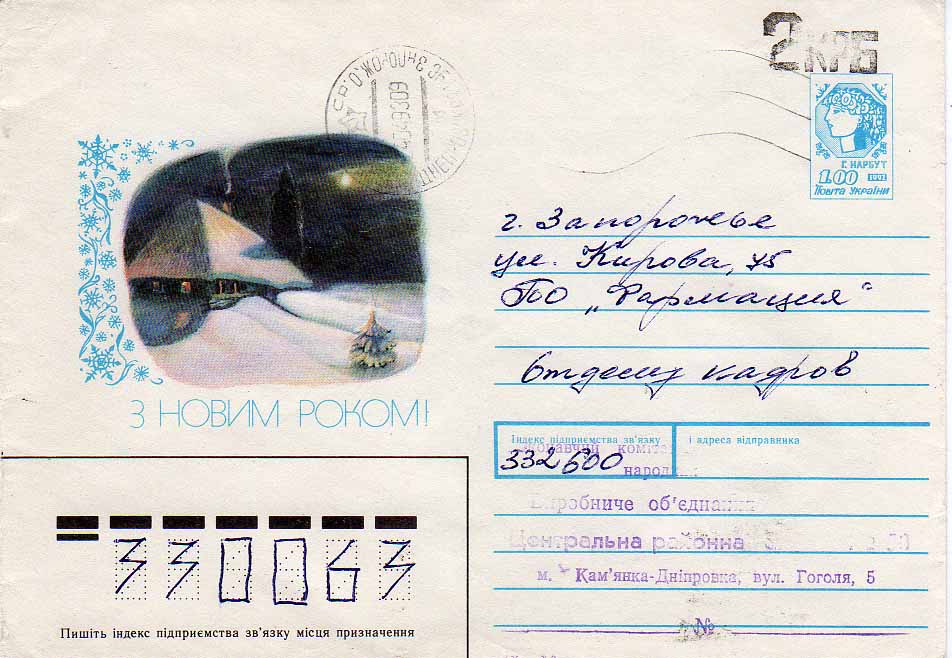 2 КРБ
Г. НАРБУТ
1.00 1992
Пошта України
г. Запорожье
ул. Кирова, 75
ПО „Фармация“
Отделу кадров
З НОВИМ РОКОМ!
Індекс підприємства зв'язку і адреса відправника
332600
Виробниче об'єднання
Центральна районна
м. Кам'янка-Дніпровка, вул. Гоголя, 5
№
330063
Пишіть індекс підприємства зв'язку місця призначення